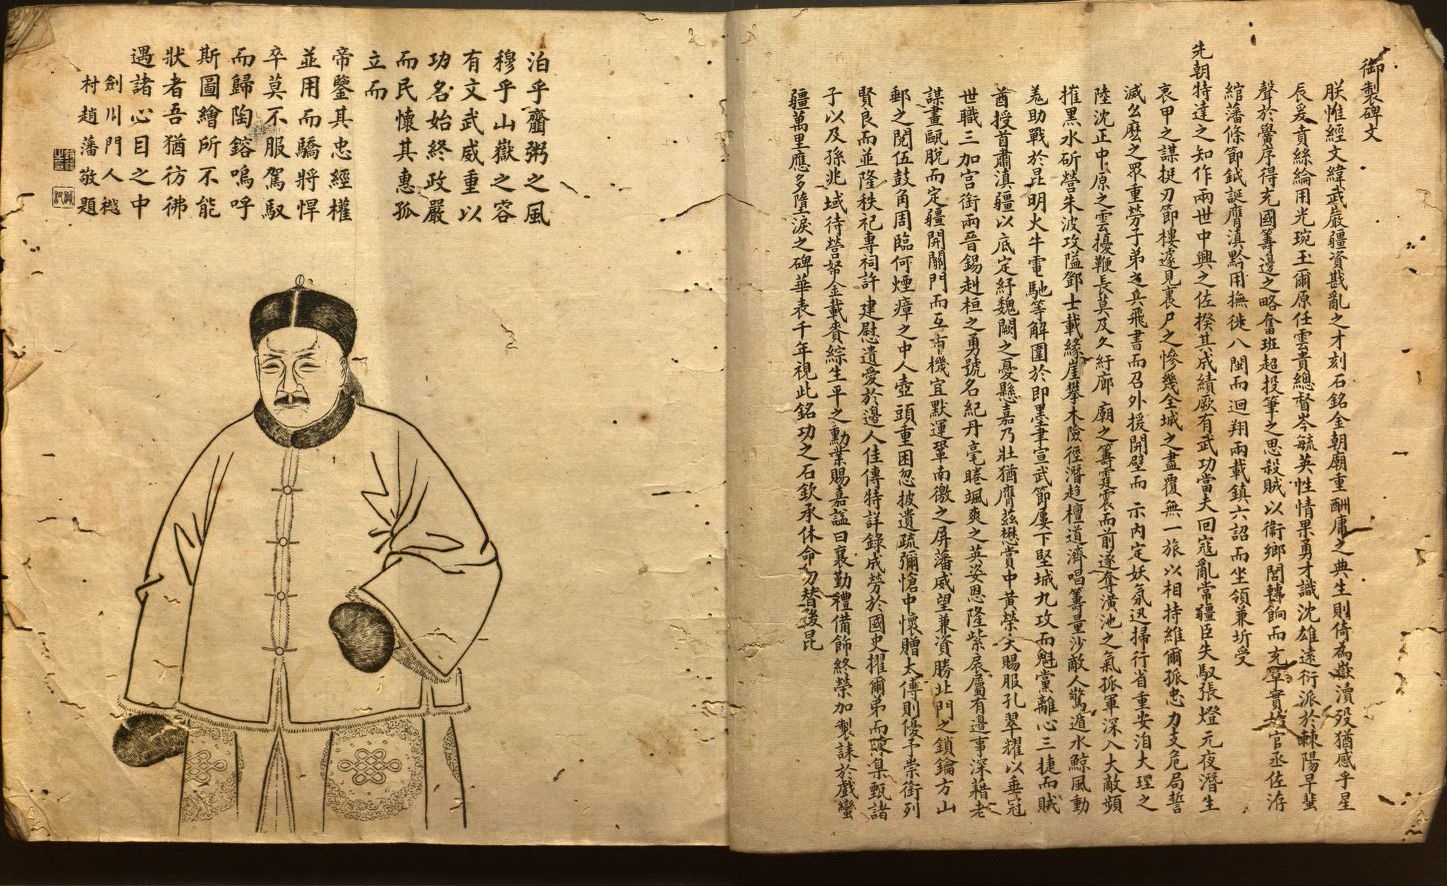 御製碑文
朕惟經文緯武嚴疆資戡亂之才刻石銘金朝廟重酬庸之典生則倚為嶽瀆歿猶感乎星
辰爰賁絲綸用光琬玉爾原任雲貴總督岑毓英性情果勇才識沈雄遠衍派於棘陽早蜚
聲於黌序得充國籌邊之略奮班超投筆之思殺賊以衛鄉閭轉餉而充軍實始官丞佐洊
綰藩條節鉞誕膺滇黔用撫徙八閩而迴翔兩載鎮六詔而坐領兼圻受
先朝特達之知作兩世中興之佐揆其成績厥有武功當夫回寇亂常疆臣失馭張燈元夜潛生
衷甲之謀挺刃節樓遽見裹尸之慘幾全城之盡覆無一旅以相持維爾孤忠力支危局誓
滅么麽之眾重勞子弟之兵飛書而召外援開壁而示內定妖氛迅掃行省重安洎大理之
陸沈正中原之雲擾鞭長莫及久紆廊廟之籌霆震而前遂奪潢池之氣孤軍深入大敵頻
摧黑水斫營朱波攻隘鄧士載緣崖攀木險徑潛趨檀道濟唱籌量沙敵人驚遁水鯨風動
羗助戰於昆明火牛電馳等解圍於即墨聿宣武節屢下堅城九攻而魁黨離心三捷而賊
酋授首肅滇疆以底定紓魏闕之憂懸嘉乃壯猶膺茲懋賞中黃榮夭賜服孔翠耀以垂冠
世職三加宮銜兩晉錫赳桓之勇號名紀丹毫睠颯爽之英姿恩隆紫扆屬有邊事深藉老
謀畫甌脫而定疆開關門而互市機宜默運鞏南徼之屏藩威望兼資勝北門之鎖鑰方山
郵之閱伍鼓角周臨何煙瘴之中人壺頭重困忽披遺疏彌愴中懷贈太傅則優予崇銜列
賢良而並隆秩祀專祠許建慰遺愛於邊人佳傳特詳錄成勞於國史擢爾弟而陳臬甄諸
子以及孫兆域待營帑金載賚綜生平之勳業賜嘉諡曰襄勤禮備飾終榮加製誄於戲蠻
疆萬里應多墮淚之碑華表千年視此銘功之石欽承休命勿替後昆
泊乎齏粥之風
穆乎山嶽之容
有文武威重以
功名始終政嚴
而民懷其惠孤
立而
帝鑒其忠經權
並用而驕將悍
卒莫不服駕馭
而歸陶鎔嗚呼
斯圖繪所不能
狀者吾猶彷彿
遇諸心目之中
劍川門人樾
村趙藩敬題